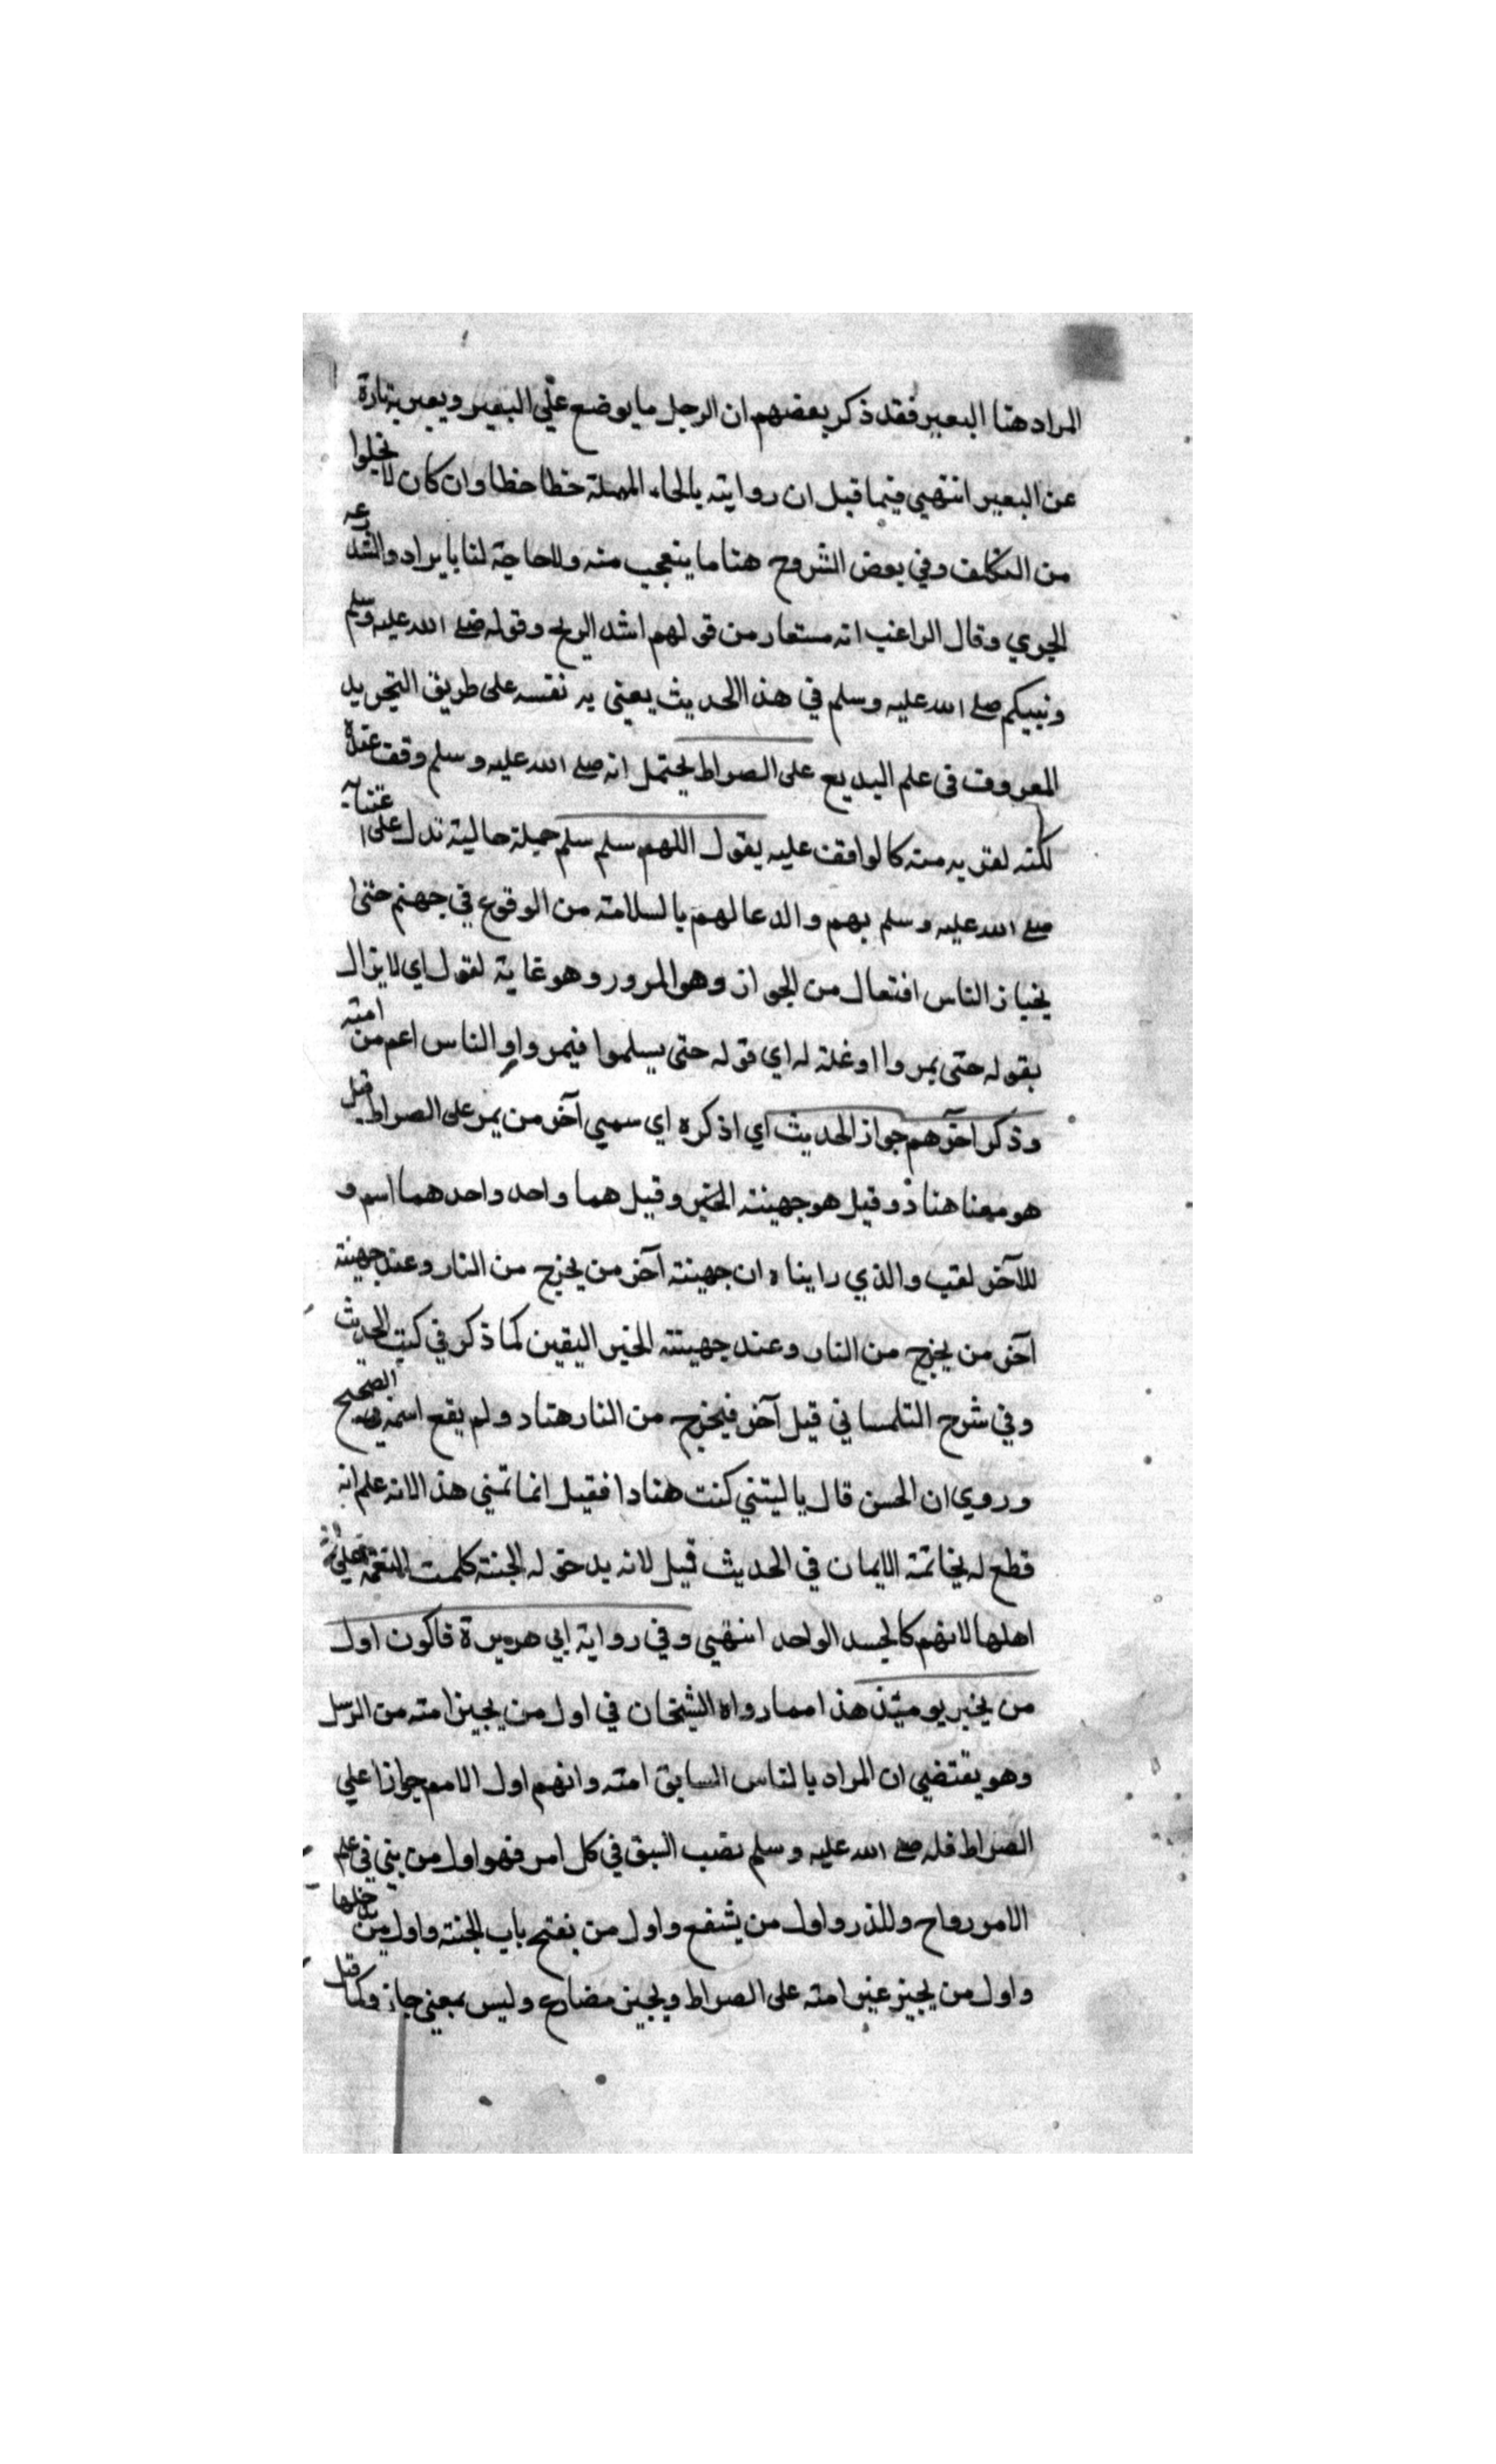 المراد هنا البعير فقد ذكر بعضهم ان الرجل ما يوضع علي البعير ويعبر به تارة
عن البعير انتهي فيما قيل ان روايته بالحاء المهملة خطا خطا وان كان لا يخلوا
من التكلف وفي بعض الشروح هنا ما يتعجب منه ولا حاجة لنا بايراده والشد
الجري وقال الراغب انه مستعار من قولهم اشد الريح وقوله صلى الله عليه وسلم
ونبيكم صلى الله عليه وسلم في هذا الحديث يعني به نفسه على طريق التجريد
المعروف في علم البديع على الصراط يحتمل انه صلى الله عليه وسلم وقف عنده
لكنه لقربه منه كالواقف عليه يقول اللهم سلم سلم جملة حالية تدل على اعتنايه
صلى الله عليه وسلم بهم والدعا لهم بالسلامة من الوقوع في جهنم حتى
يجتاز الناس افتعال من الجواز وهو المرور وهو غاية لقول اي لا يزال
يقوله حتى يمروا او غلة له اي قوله حتى يسلموا فيمروا والناس اعم من امته
وذكر اخرهم جواز الحديث اي اذكره اي سمي آخر من يمر على الصراط قيل
هو معنا هناد وقيل هو جهينة الخبر وقيل هما واحد واحدهما اسم و
للآخر لقب والذي رايناه ان جهينة آخر من يخرج من النار وعند جهينة
آخر من يخرج من النار وعند جهينة الخبر اليقين كما ذكر في كتب الحديث
وفي شرح التلمساني قيل آخر فيخرج من النار هناد ولم يقع اسمه في الصحيح
وروي ان الحسن قال يا ليتني كنت هنادا فقيل انما تمني هذا لانه علم انه
قطع له بخاتمة الايمان في الحديث قيل لانه بدخوله الجنة كلمت النعمة على
اهلها لانهم كالجسد الواحد انتهي وفي رواية ابي هريرة فاكون اول
من يخبر يوميئذ هذا مما رواه الشيخان في اول من يجيز امته من الرسل
وهو يقتضي ان المراد بالناس السابق امته وانهم اول الامم جوازا علي
الصراط فله صلى الله عليه وسلم نصب السبق في كل امر فهو اول من بني في علم
الامر رواح وللذر واول من يشفع واول من يفتح باب الجنة واول من يدخلها
واول من يجيز عبر امته على الصراط ويجيز مضارع وليس بمعني جاز وكما قيل